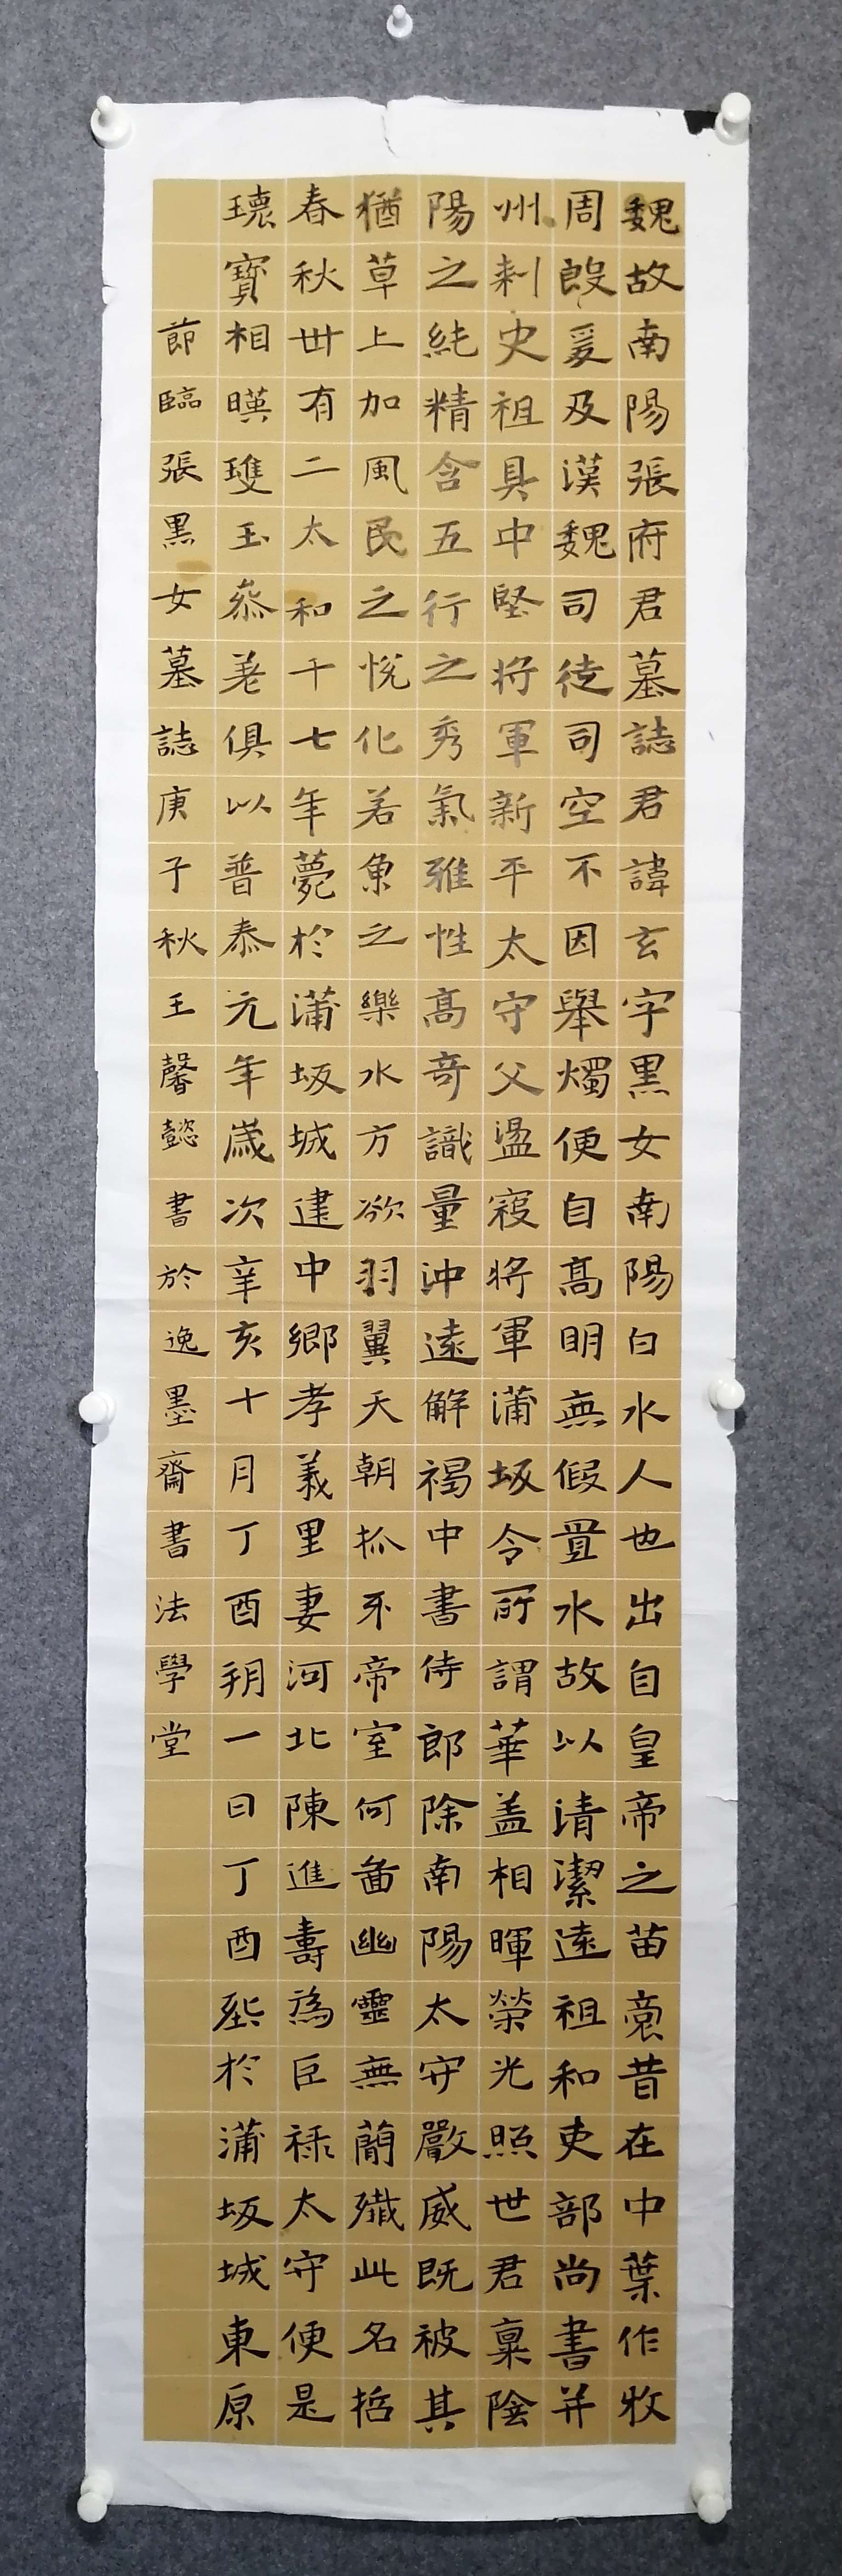 魏故南陽張府君墓誌君諱玄字黑女南陽白水人也出自皇帝之苗裔昔在中葉作牧
周殷爰及漢魏司徒司空不因舉燭便自高明無假置水故以清潔遠祖和吏部尚書并
州刺史祖具中堅將軍新平太守父盪寇將軍蒲坂令所謂華蓋相暉榮光照世君稟陰
陽之純精含五行之秀氣雅性高奇識量沖遠解褐中書侍郎除南陽太守嚴威既被其
猶草上加風民之悅化若魚之樂水方欲羽翼天朝抓牙帝室何啚幽靈無簡殲此名哲
春秋卅有二太和十七年薨於蒲坂城建中鄉孝義里妻河北陳進壽為臣祿太守便是
瓌寶相暎瓊玉參差俱以普泰元年歲次辛亥十月丁酉朔一日丁酉葬於蒲坂城東原
節臨張黑女墓誌庚子秋王馨懿書於逸墨齋書法學堂